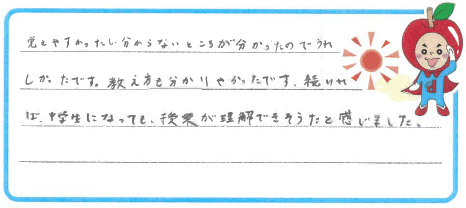 覚えやすかったし分からないところが分かったのでうれ
しかったです。教え方も分かりやすかったです。続けれ
ば、学生になっても、授業が理解できそうだと感じました。